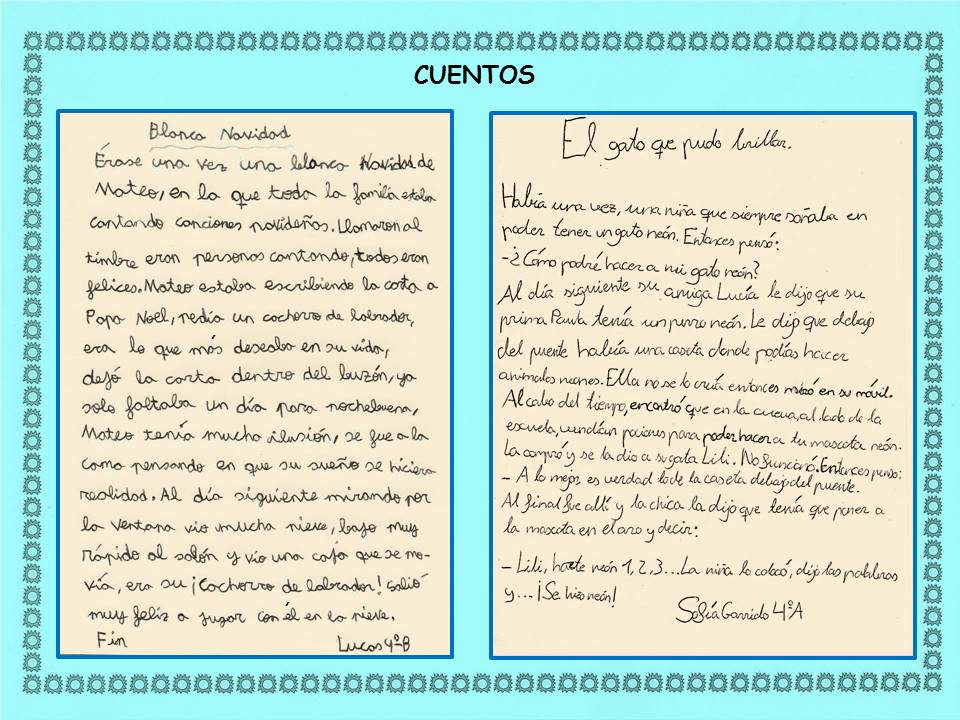 CUENTOS
Blanca Navidad
Érase una vez una blanca Navidad de
Mateo, en la que toda la familia estaba
cantando canciones navideños. Llamaron al
timbre eran personas cantando, todos eran
felices. Mateo estaba escribiendo la carta a
Papa Noel, pedía un cachorro de labrador,
era lo que más deseaba en su vida,
dejó la carta dentro del buzón, ya
solo faltaba un día para nochebuena,
Mateo tenía mucha ilusión, se fue a la
cama pensando en que su sueño se hiciera
realidad. Al día siguiente mirando por
la ventana vio mucha nieve, bajo muy
rápido al salón y vio una caja que se mo-
vía, era su ¡Cachorro de labrador! Salió
muy feliz a jugar con él en la nieve.
Fin
Lucas 4º-B
El gato que pudo brillar.
Había una vez, una niña que siempre soñaba en
poder tener un gato neón. Entonces pensó:
-¿Cómo podré hacer a mi gato neón?
Al día siguiente su amiga Lucía le dijo que su
prima Paula tenía un perro neón. Le dijo que debajo
del puente habría una caseta donde podías hacer
animales neones. Ella no se lo creía entonces miró en su móvil.
Al cabo del tiempo, encontró que en la cueva, al lado de la
escuela, vendían pociones para poder hacer a tu mascota neón.
La compró y se la dio a su gata Lili. No funcionó. Entonces pensó:
- A lo mejor es verdad lo de la caseta debajo del puente.
Al final fue allí y la chica la dijo que tenía que poner a
la mascota en el aro y decir:
- Lili, hazte neón 1, 2, 3... La niña lo colocó, dijo las palabras
y... ¡Se hizo neón!
Sofía Garrido 4ºA